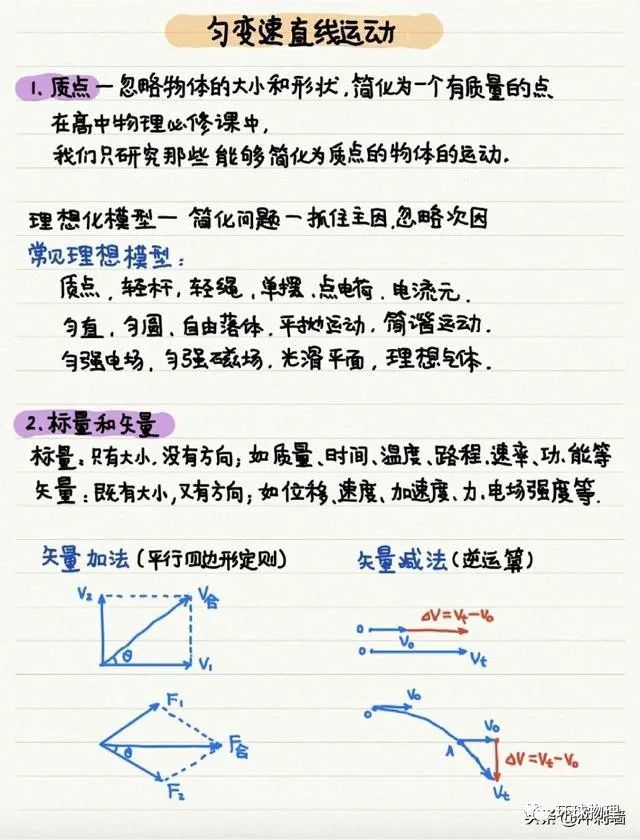 匀变速直线运动
1. 质点—忽略物体的大小和形状,简化为一个有质量的点
在高中物理必修课中,
我们只研究那些能够简化为质点的物体的运动.
理想化模型— 简化问题—抓住主因,忽略次因
常见理想模型:
质点, 轻杆, 轻绳, 单摆, 点电荷, 电流元.
匀直, 匀圆, 自由落体, 平抛运动, 简谐运动.
匀强电场, 匀强磁场, 光滑平面, 理想气体.
2. 标量和矢量
标量:只有大小,没有方向;如质量、时间、温度、路程、速率、功、能等
矢量:既有大小,又有方向;如位移、速度、加速度、力、电场强度等.
矢量加法(平行四边形定则)
V₂ V合
θ V₁
F₁
θ F合
F₂
矢量减法(逆运算)
ΔV=Vt-V₀
0 V₀
0 Vt
V₀
0
A V₀
ΔV=Vt-V₀
Vt
环球物理
头条@冲刺墙